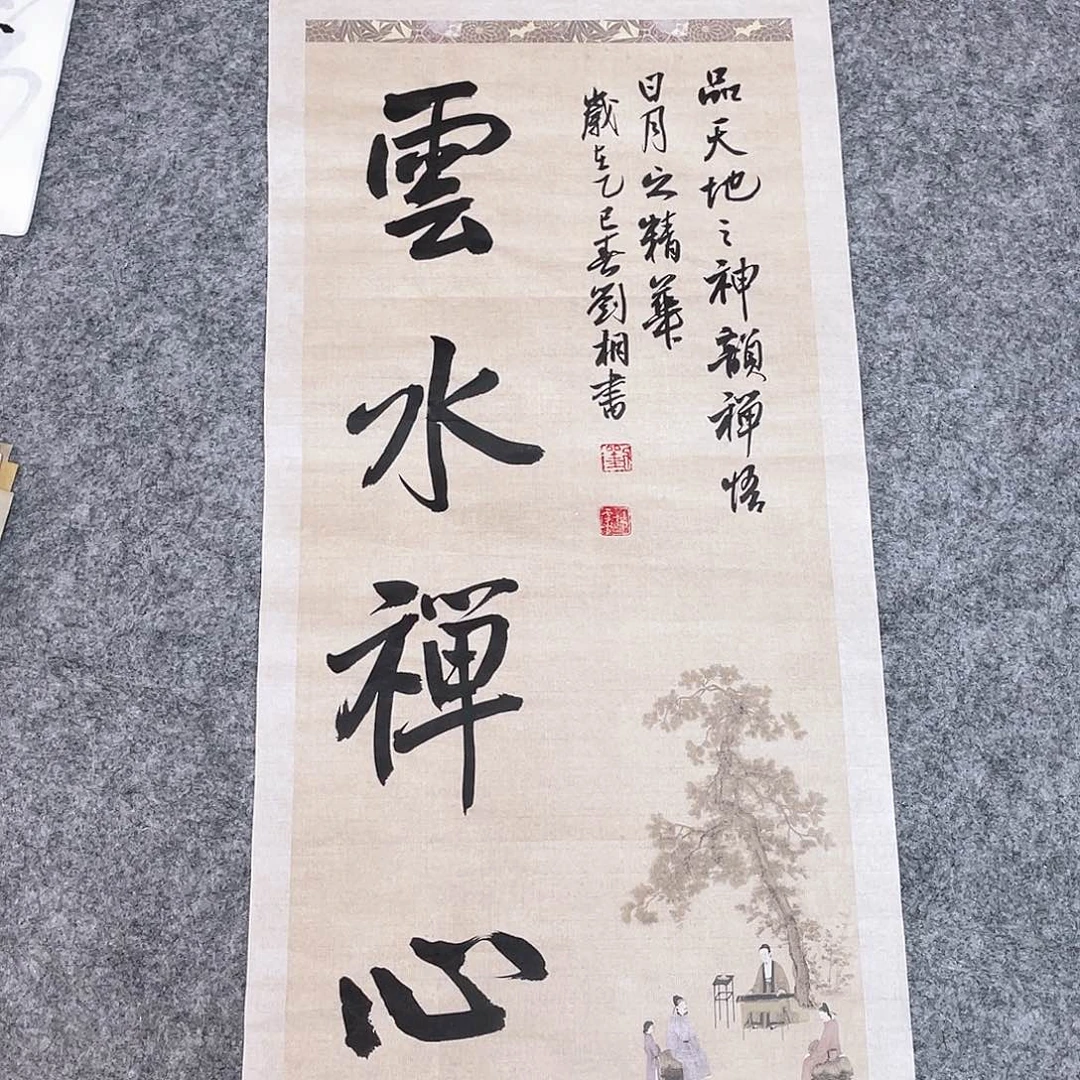 品天地之神韻禅悟
日月之精華
歲在乙巳春劉桐書
雲水禅心